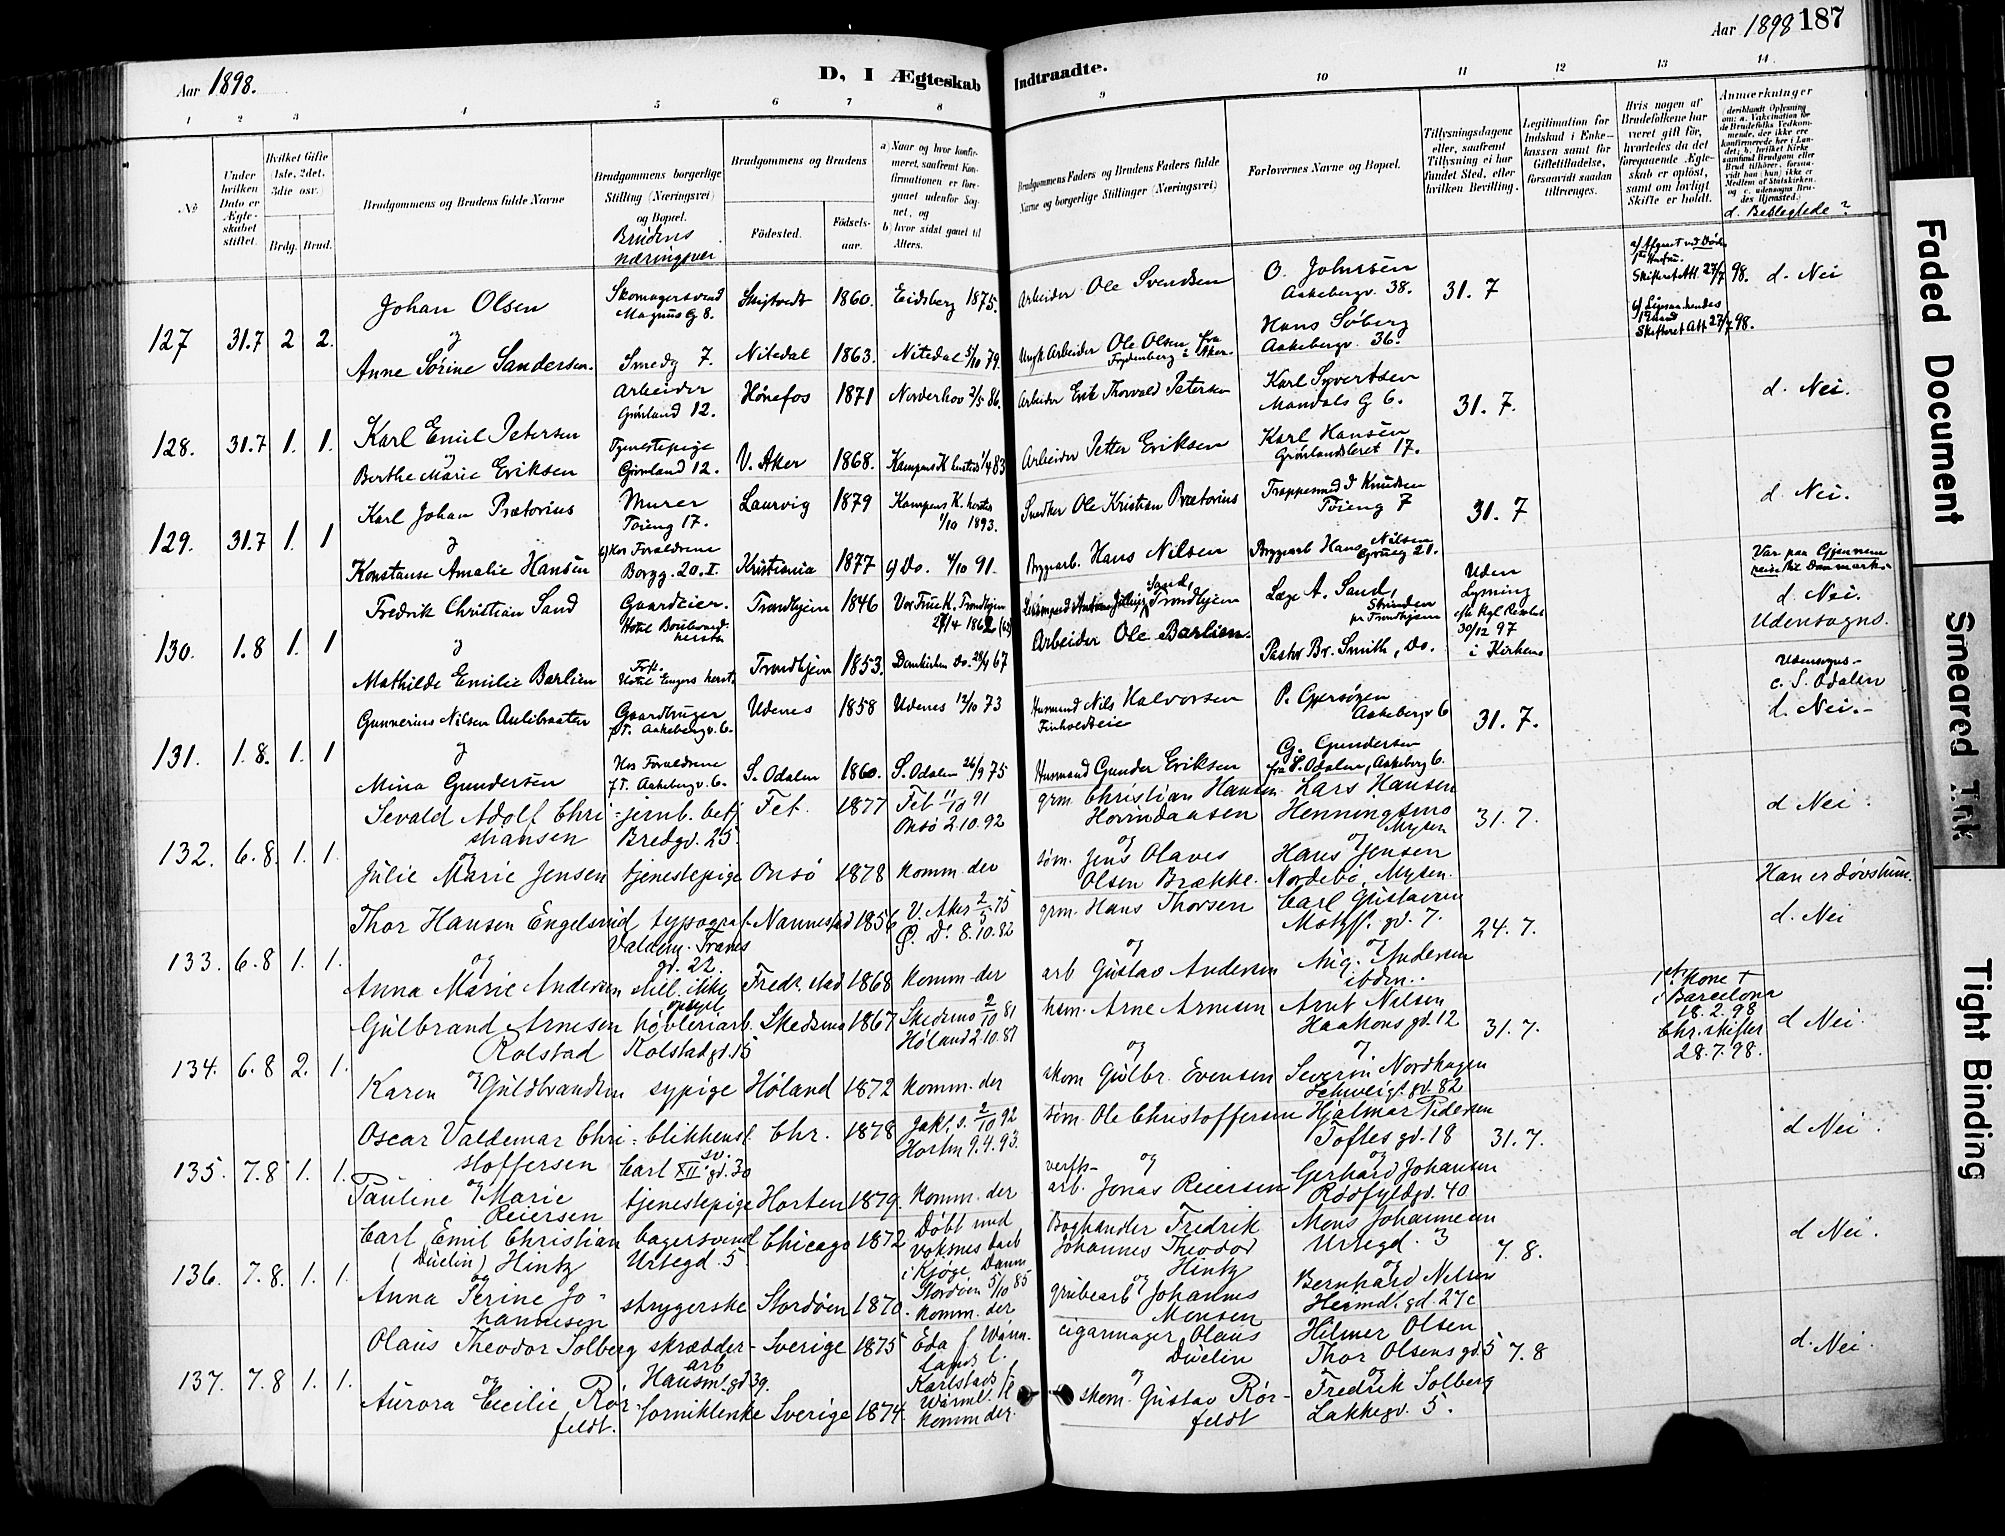 Aar 1898.
D, I Ægteskab Indtraadte.
Aar 1898 187
1 2 3 4 5 6 7 8 9 10 11 12 13 14
No
Under hvilken Dato er Ægteskabet stiftet.
Hvilket Gifte (1ste, 2det, 3die osv.)
Brdg. Brud.
Brudgommens og Brudens fulde Navne
Brudgommens borgerlige Stilling (Næringsvei) og Bopæl.
Brudens næringsvei
Brudgommens og Brudens
Fødested. Fødselsaar.
a) Naar og hvor konfirmeret, saafremt Konfirmationen er foregaaet udenfor Sognet, og
b) hvor sidst gaaet til Alters.
Brudgommens Faders og Brudens Faders fulde Navne og borgerlige Stillinger (Næringsvei)
Forlovernes Navne og Bopæl.
Tillysningsdagene eller, saafremt Tillysning ei har fundet Sted, efter hvilken Bevilling.
Legitimation for Indskud i Enkekassen samt for Giftetilladelse, forsaavidt saadan tiltrænges.
Hvis nogen af Brudefolkene har været gift før, hvorledes da det foregaaende Ægteskab er opløst, samt om lovligt Skifte er holdt.
Anmærkninger
d. Beslægtede?
127 31.7 2 2.
Johan Olsen Skomagersvend Magnus G 8. 1860. Eidsberg 1875. Arbeider Ole Svendsen O. Johnsen Aakebergv. 38. 31. 7 d. Nei
Skifteret Att. 27/7 98.
Anne Sørine Sandersen. Smedg 7. Nitedal 1863. Nitedal 5/10 79. Arbeider Ole Olsen fra Frydenberg i Aker. Hans Søberg Aakebergv. 36.
Skifteret Att 27/7 98.
128. 31.7 1. 1.
Karl Emil Petersen Arbeider Grønland 12. Hønefos 1871 Norderhov 2/5 86. Arbeider Erik Thorvald Petersen Karl Syvertsen Mandals G 6. 31. 7. d. Nei.
Berthe Marie Eriksen Tjenestepige Grønland 12. V. Aker 1868. Kampens K 1/4 83 Arbeider Petter Eriksen Karl Hansen Grønlandsleret 17.
129. 31.7 1. 1
Karl Johan Prætorius Murer Tøieng 17. Laurvig 1879 Kampens K. 1/10 1893. Snedker Ole Kristian Prætorius Trappesmed J Knudsen Tøieng 7 31. 7 d. Nei.
Konstanse Amalie Hansen Hos Forældrene Borgg. 20. I. Kristiania 1877 Do. 4/10 91. Hans Nilsen Hans Nilsen 21.
130. 1.8 1. 1
Fredrik Christian Sand Gaardeier. Hotel Boulevard Trondhjem 1846 Vor Frue K. Trondhjem Trondhjem Læge A. Sand, Strinden pr Trondhjem Uden Lysning 30/12 97 i Kirken
Var paa Gjennemreise til Danmark. d. Nei. Udensogns.
Mathilde Emilie Barlien Frk. Trondhjem 1853. Domkirken do. 67 Arbeider Ole Barlien. Pastor Br. Smith, do.
131. 1. 8. 1. 1
Gunnerius Nilsen Aulibraaten Gaardbruger p.T. Aakebergv. 6. Udenes 1858 Udenes 12/10 73 Husmand Nils Halvorsen Finholdteie P. Gjersøgen Aakebergv 6 31. 7.
Udensogns - c. S. Odalen d. Nei.-
Mina Gundersen Hos Forældrene p.T. Aakebergv. 6. S. Odalen 1860. S. Odalen 26/9 75 Husmand Gunder Eriksen G. Gundersen fra S. Odalen, Aakeberg 6.
132. 6. 8. 1. 1.
Sevald Adolf Christiansen jernb. betj Bredgv. 25. Fet. 1877 Fet 11/10 91 Onsø 2.10.92 grm. Christian Hansen Hovindaasen Lars Hansen Henningsmo Mysen 31. 7. d Nei.
og
Julie Marie Jensen tjenestepige Onsø 1878 komm. der søm. Jens Olaves Olsen Brække. Hans Jensen Nordebø, Mysen. Han er døvstum.
133. 6. 8 1. 1.
Thor Hansen Engelsrud typograf Valdem. Tranes gd. 22. Nannestad 1856 V. Aker 2/5 75 8.10.82 grm. Hans Thorsen Carl Gustavsen Motzf. gd. 7. 24. 7. d Nei
og
Anna Marie Andersen still. ikke opgivet Fredr. stad 1868 komm. der arb Gustav Andersen Aug. Andersen ibdm..
134. 6. 8 2. 1.
Gulbrand Arnesen Rolstad høvleriarb. Rolstadgd. 15 Skedsmo 1867 Skedsmo 2/10 81 Høland 2.10.87 hsm. Arne Arnesen Arnt Nilsen Haakons gd. 12 31. 7.
1st Kone † i Barcelona 18.2.98 Chr. skifter 28.7.98. d Nei.
Karen Guldbrandsen sypige Høland 1872 komm. der skom Gulbr. Evensen Severin Nordhagen Schweig. gd. 82
135. 7. 8 1. 1.
Oscar Valdemar Christoffersen blikkensl. sv. Carl XII gd. 30 Chr. 1878 Jak. s. 2/10 92 Horten 9.4.93. søm. Ole Christoffersen Hjalmar Pedersen Toftes gd. 18 31. 7. d Nei.
og
Pauline Marie Reiersen tjenestepige Horten 1879. komm. der verftsarb. Jonas Reiersen Gerhard Johansen Rødfyldgd. 40
136. 7. 8. 1. 1.
Carl Emil Christian (Düelin) Hintz bagersvend Urtegd. 5 Chicago 1872 Døbt med voksnes daab i Kjøge Danm. Boghandler Fredrik Johannes Theodor Hintz Mons Johannesen Urtegd. 3 7. 8. d Nei.
og
Anna Serine Johannesen strygerske Stordøen 1870. Stordøen 5/10 85 komm. der grubearb Johannes Monsen Bernhard Nelsen Heimdl. gd. 27c
137. 7. 8 1. 1.
Olaus Theodor Solberg skrædderarb Hausm. gd 39. Sverige 1875 Eda Wärmlands l. cigarmager Olaus Düelin Hilmer Olsen Thor Olsens gd. 5 7. 8 d. Nei.
og
Aurora Cecilie Rörfeldt. forniklenke Sverige 1874. Karlstads Wärml. komm der. skom. Gustav Rörfeldt Fredrik Solberg Lakkegv. 5.
Faded Document
Smeared Ink
Tight Binding